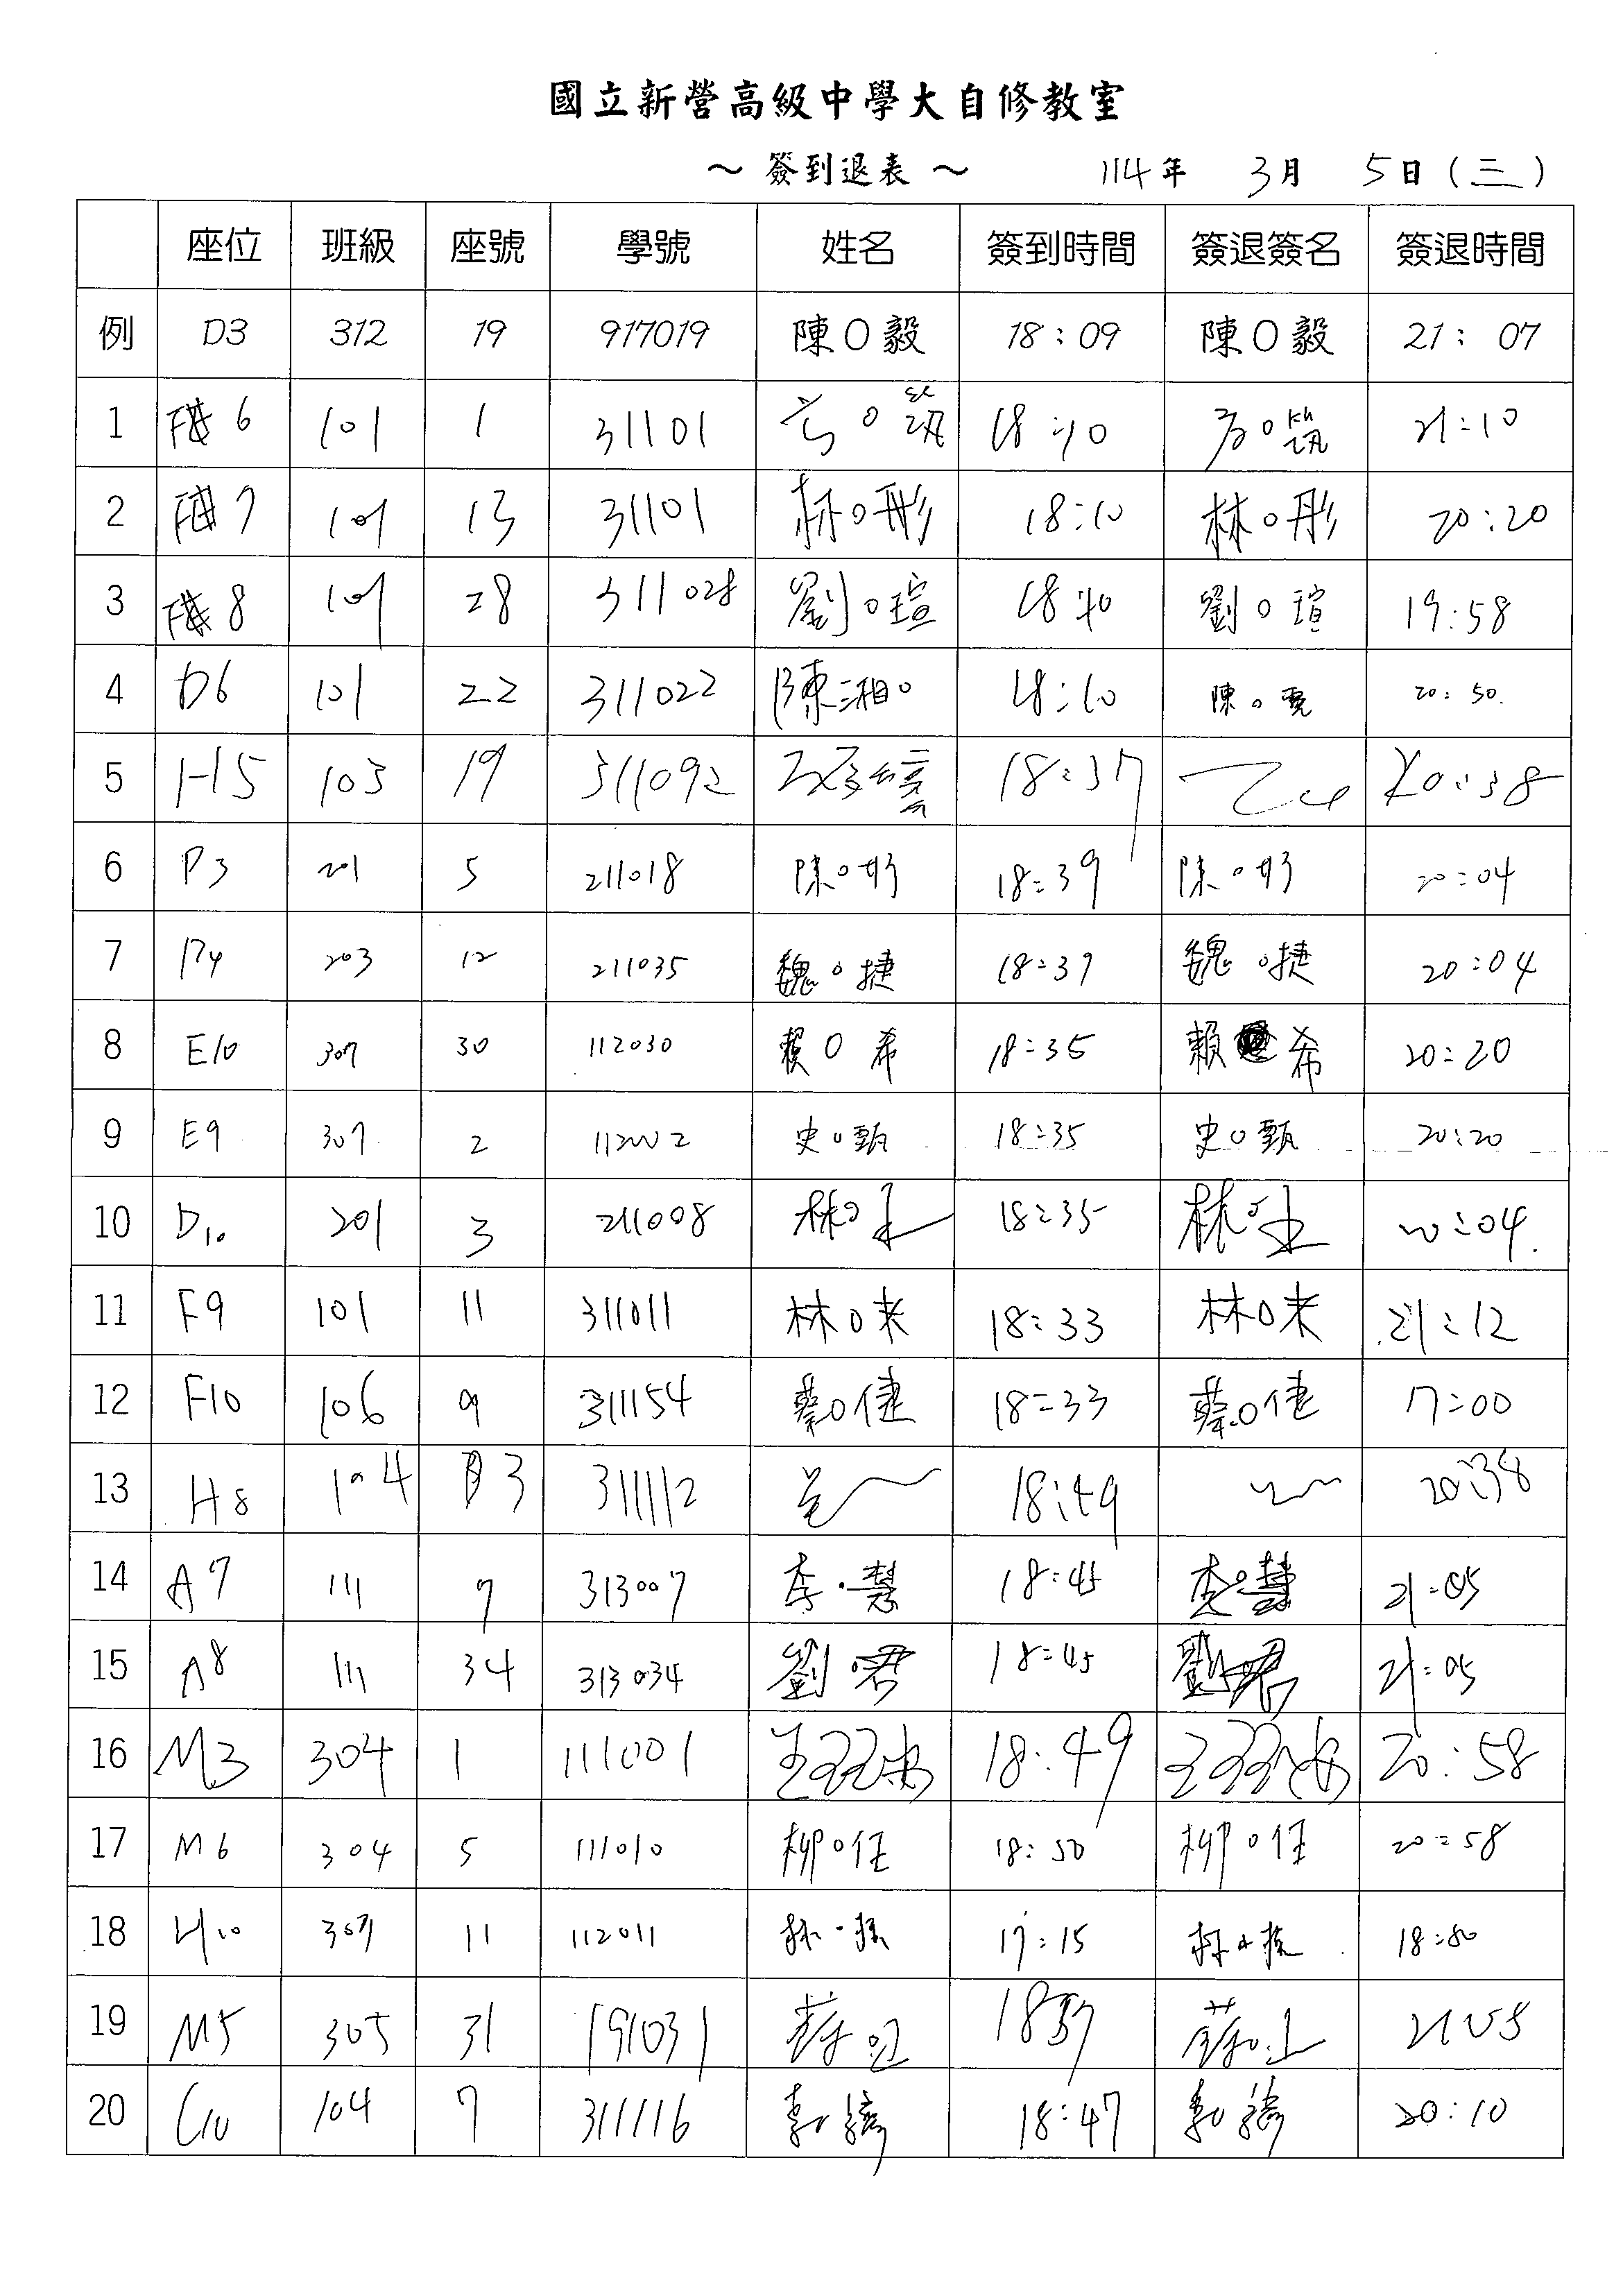 國立新營高級中學大自修教室
～ 簽到退表 ～ 114年 3月 5日(三)
座位 班級 座號 學號 姓名 簽到時間 簽退簽名 簽退時間
例 D3 312 19 917019 陳〇毅 18:09 陳〇毅 21:07
1 6 101 1 31101 18:10 21:10
2 7 101 13 31101 林〇彤 18:10 林〇彤 20:20
3 8 101 28 311028 劉〇瑄 18:10 劉〇瑄 19:58
4 D6 101 22 311022 陳湘〇 18:10 陳〇 20:50
5 H5 103 19 311092 18:37 20:38
6 P3 201 5 211018 陳〇 18:39 陳〇 20:04
7 P4 203 12 211035 魏〇捷 18:39 魏〇捷 20:04
8 E10 307 30 112030 賴〇希 18:35 賴 希 20:20
9 E9 307 2 112002 史〇甄 18:35 史〇甄 20:20
10 D10 201 3 211008 林〇 18:35 林〇 20:04
11 F9 101 11 311011 林〇 18:33 林〇 21:12
12 F10 106 9 311154 蔡〇倢 18:33 蔡〇倢 17:00
13 H8 104 3 311112 18:49 20:38
14 A7 111 7 313007 李·慧 18:45 李〇慧 21:05
15 A8 111 34 313034 劉〇君 18:45 劉〇君 21:05
16 M3 304 1 111001 王 18:49 王 20:58
17 M6 304 5 111010 柳〇任 18:50 柳〇任 20:58
18 H10 307 11 112011 林· 17:15 林〇 18:50
19 M5 305 31 191031 1857 蘇 2105
20 C10 104 7 311116 18:47 20:10